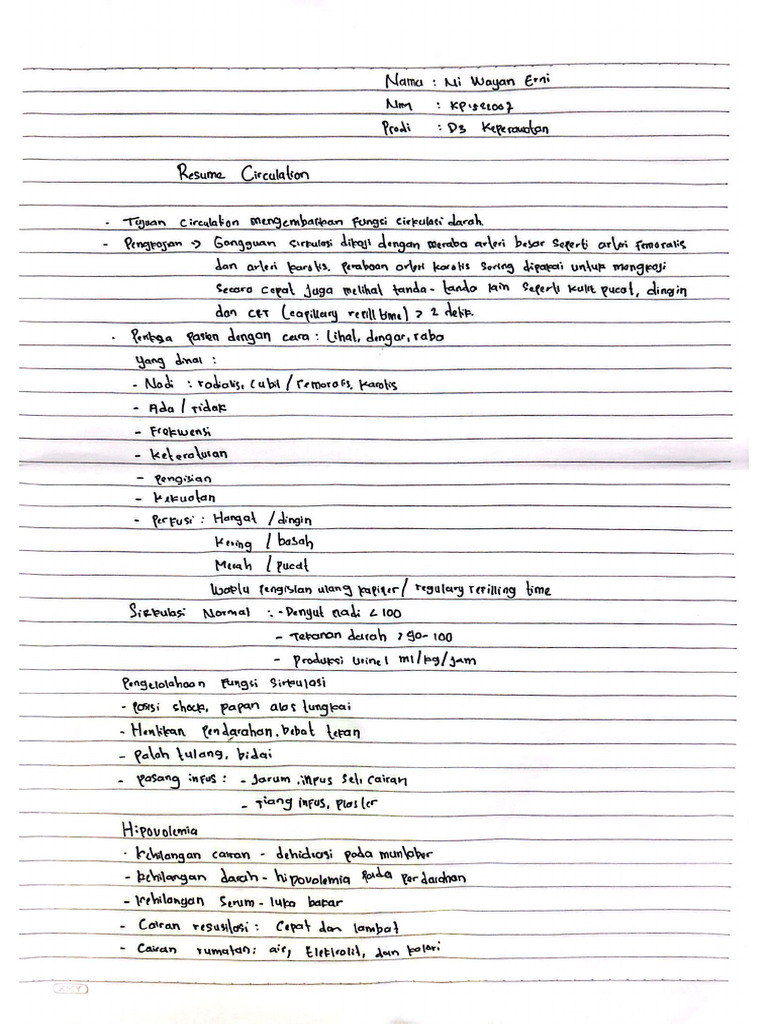 Nama : Ni Wayan Erni
Nim : KP
Prodi : D3 Keperawatan
Resume Circulation
- Tujuan circulation mengembalikan fungsi sirkulasi darah
- Pengkajian → Gangguan sirkulasi dikaji dengan meraba arteri besar seperti arteri femoralis
dan arteri karotis. perabaan arteri karotis sering dipakai untuk mengkaji
secara cepat juga melihat tanda-tanda lain seperti kulit pucat, dingin
dan CRT (capillary refill time) > 2 detik.
- Periksa pasien dengan cara : Lihat, dengar, raba
yang dinilai :
- Nadi : radialis, cubil / femoralis, karotis
- Ada / tidak
- Frekwensi
- Keteraturan
- pengisian
- kekuatan
- perfusi : Hangat / dingin
Kering / basah
Merah / pucat
Waktu pengisian ulang kapiler / regulary refilling time
Sirkulasi Normal : - Denyut nadi < 100
- Tekanan darah > 90-100
- Produksi urine 1 ml/kg/jam
Pengelolahaan fungsi sirkulasi
- posisi shock, papan alas tungkai
- Hentikan pendarahan, bebat tekan
- patah tulang, bidai
- pasang infus : - Jarum infus set, cairan
- Tiang infus, plaster
Hipovolemia
- kehilangan cairan - dehidrasi pada muntaber
- kehilangan darah - hipovolemia pada perdarahan
- kehilangan serum - luka bakar
- Cairan resusitasi : Cepat dan lambat
- Cairan rumatan : air, Elektrolit, dan kalori